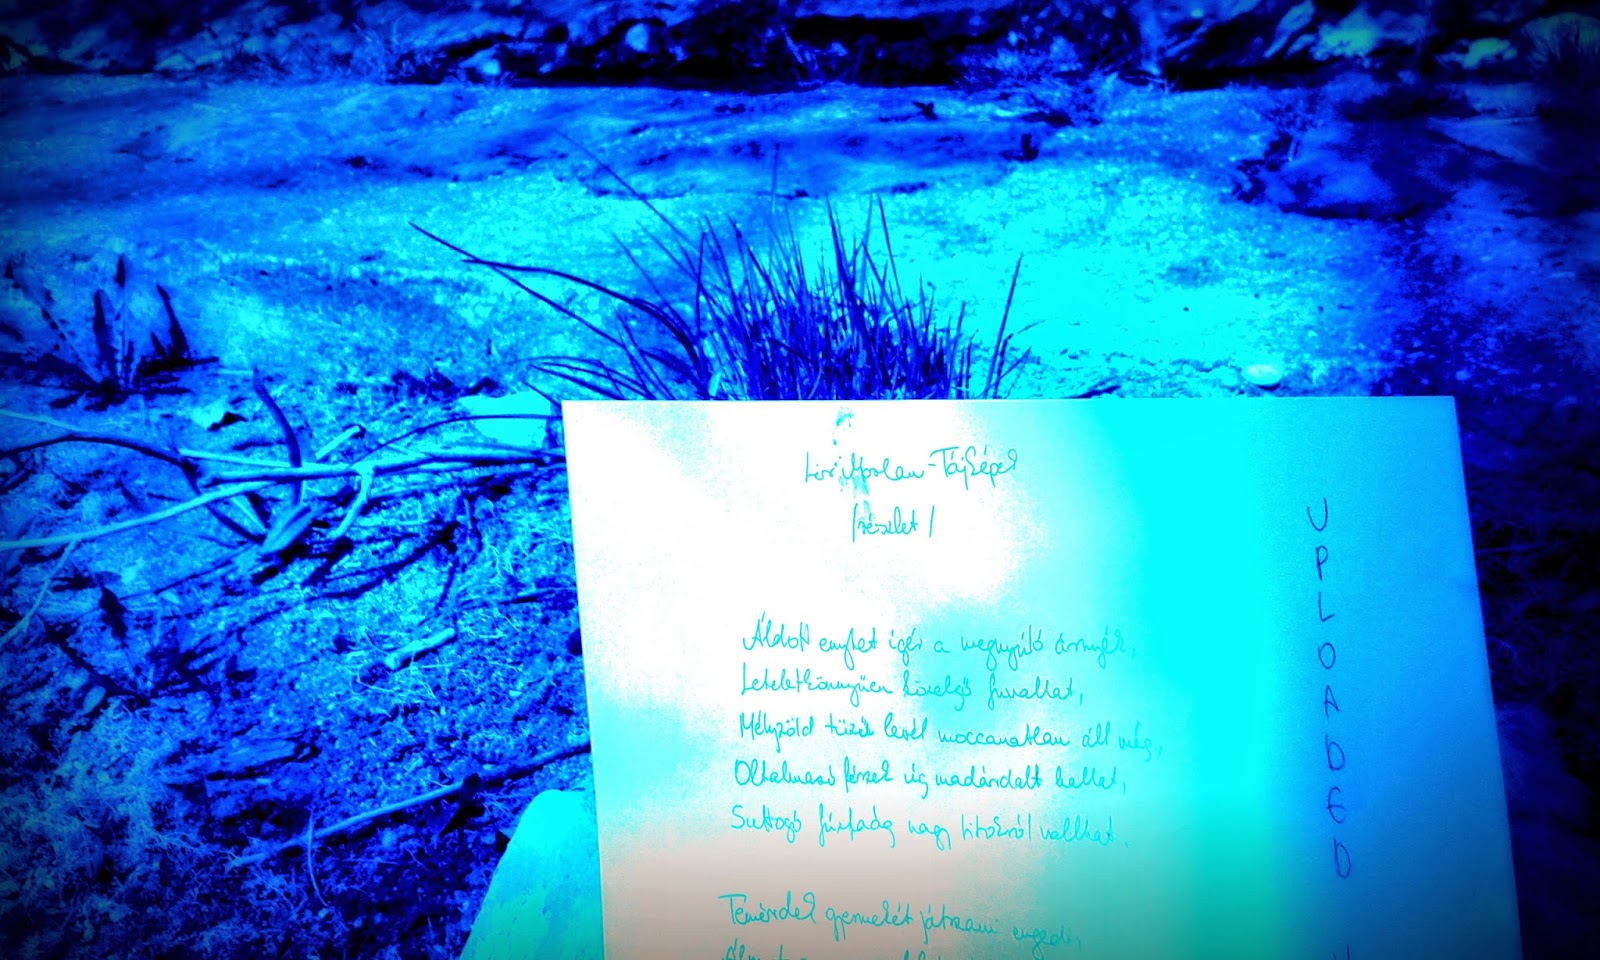 Tájképek
/részlet/
Áldott enyhet ígér a megnyúló árnyék,
Leheletkönnyűen közelgő fuvallat,
Mélyzöld tüzét levél moccanatlan áll még,
Oltalmazó fészek úg madárdalt hallat,
Suttogó fűzfaág nagy titokról vallhat.
Temérdek gyermekét játszani engedi,
UPLOADED